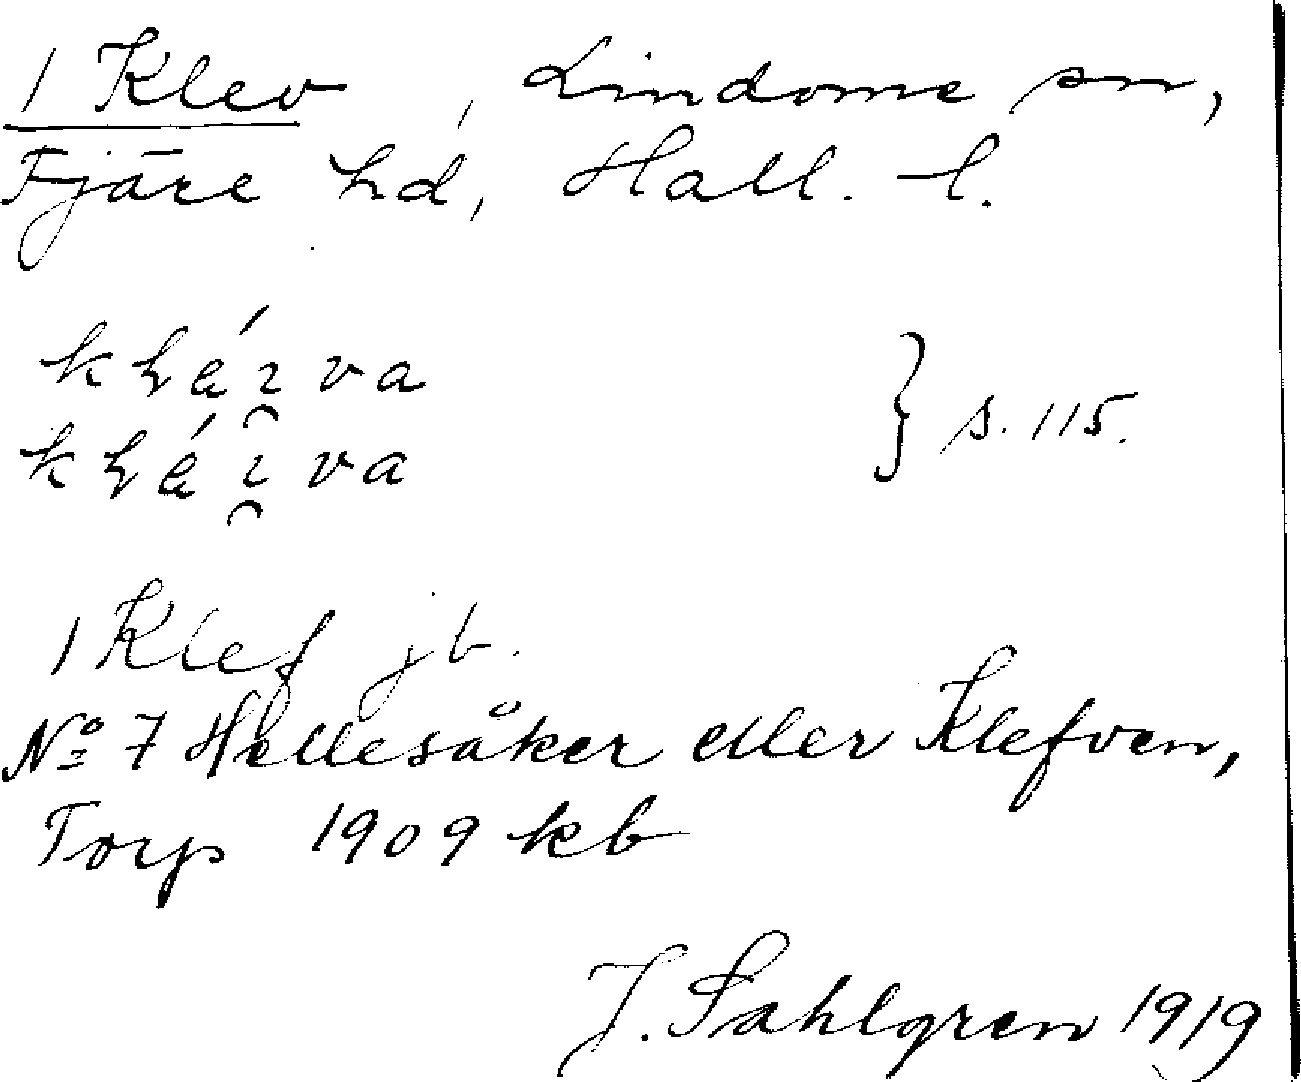 1 Klev, Lindome sn,
Fjäre hd, Hall. l.
s. 115.
1 Klef jb.
Nº 7 Hellesåker eller Klefven,
Torp 1909 kb
J. Sahlgren 1919